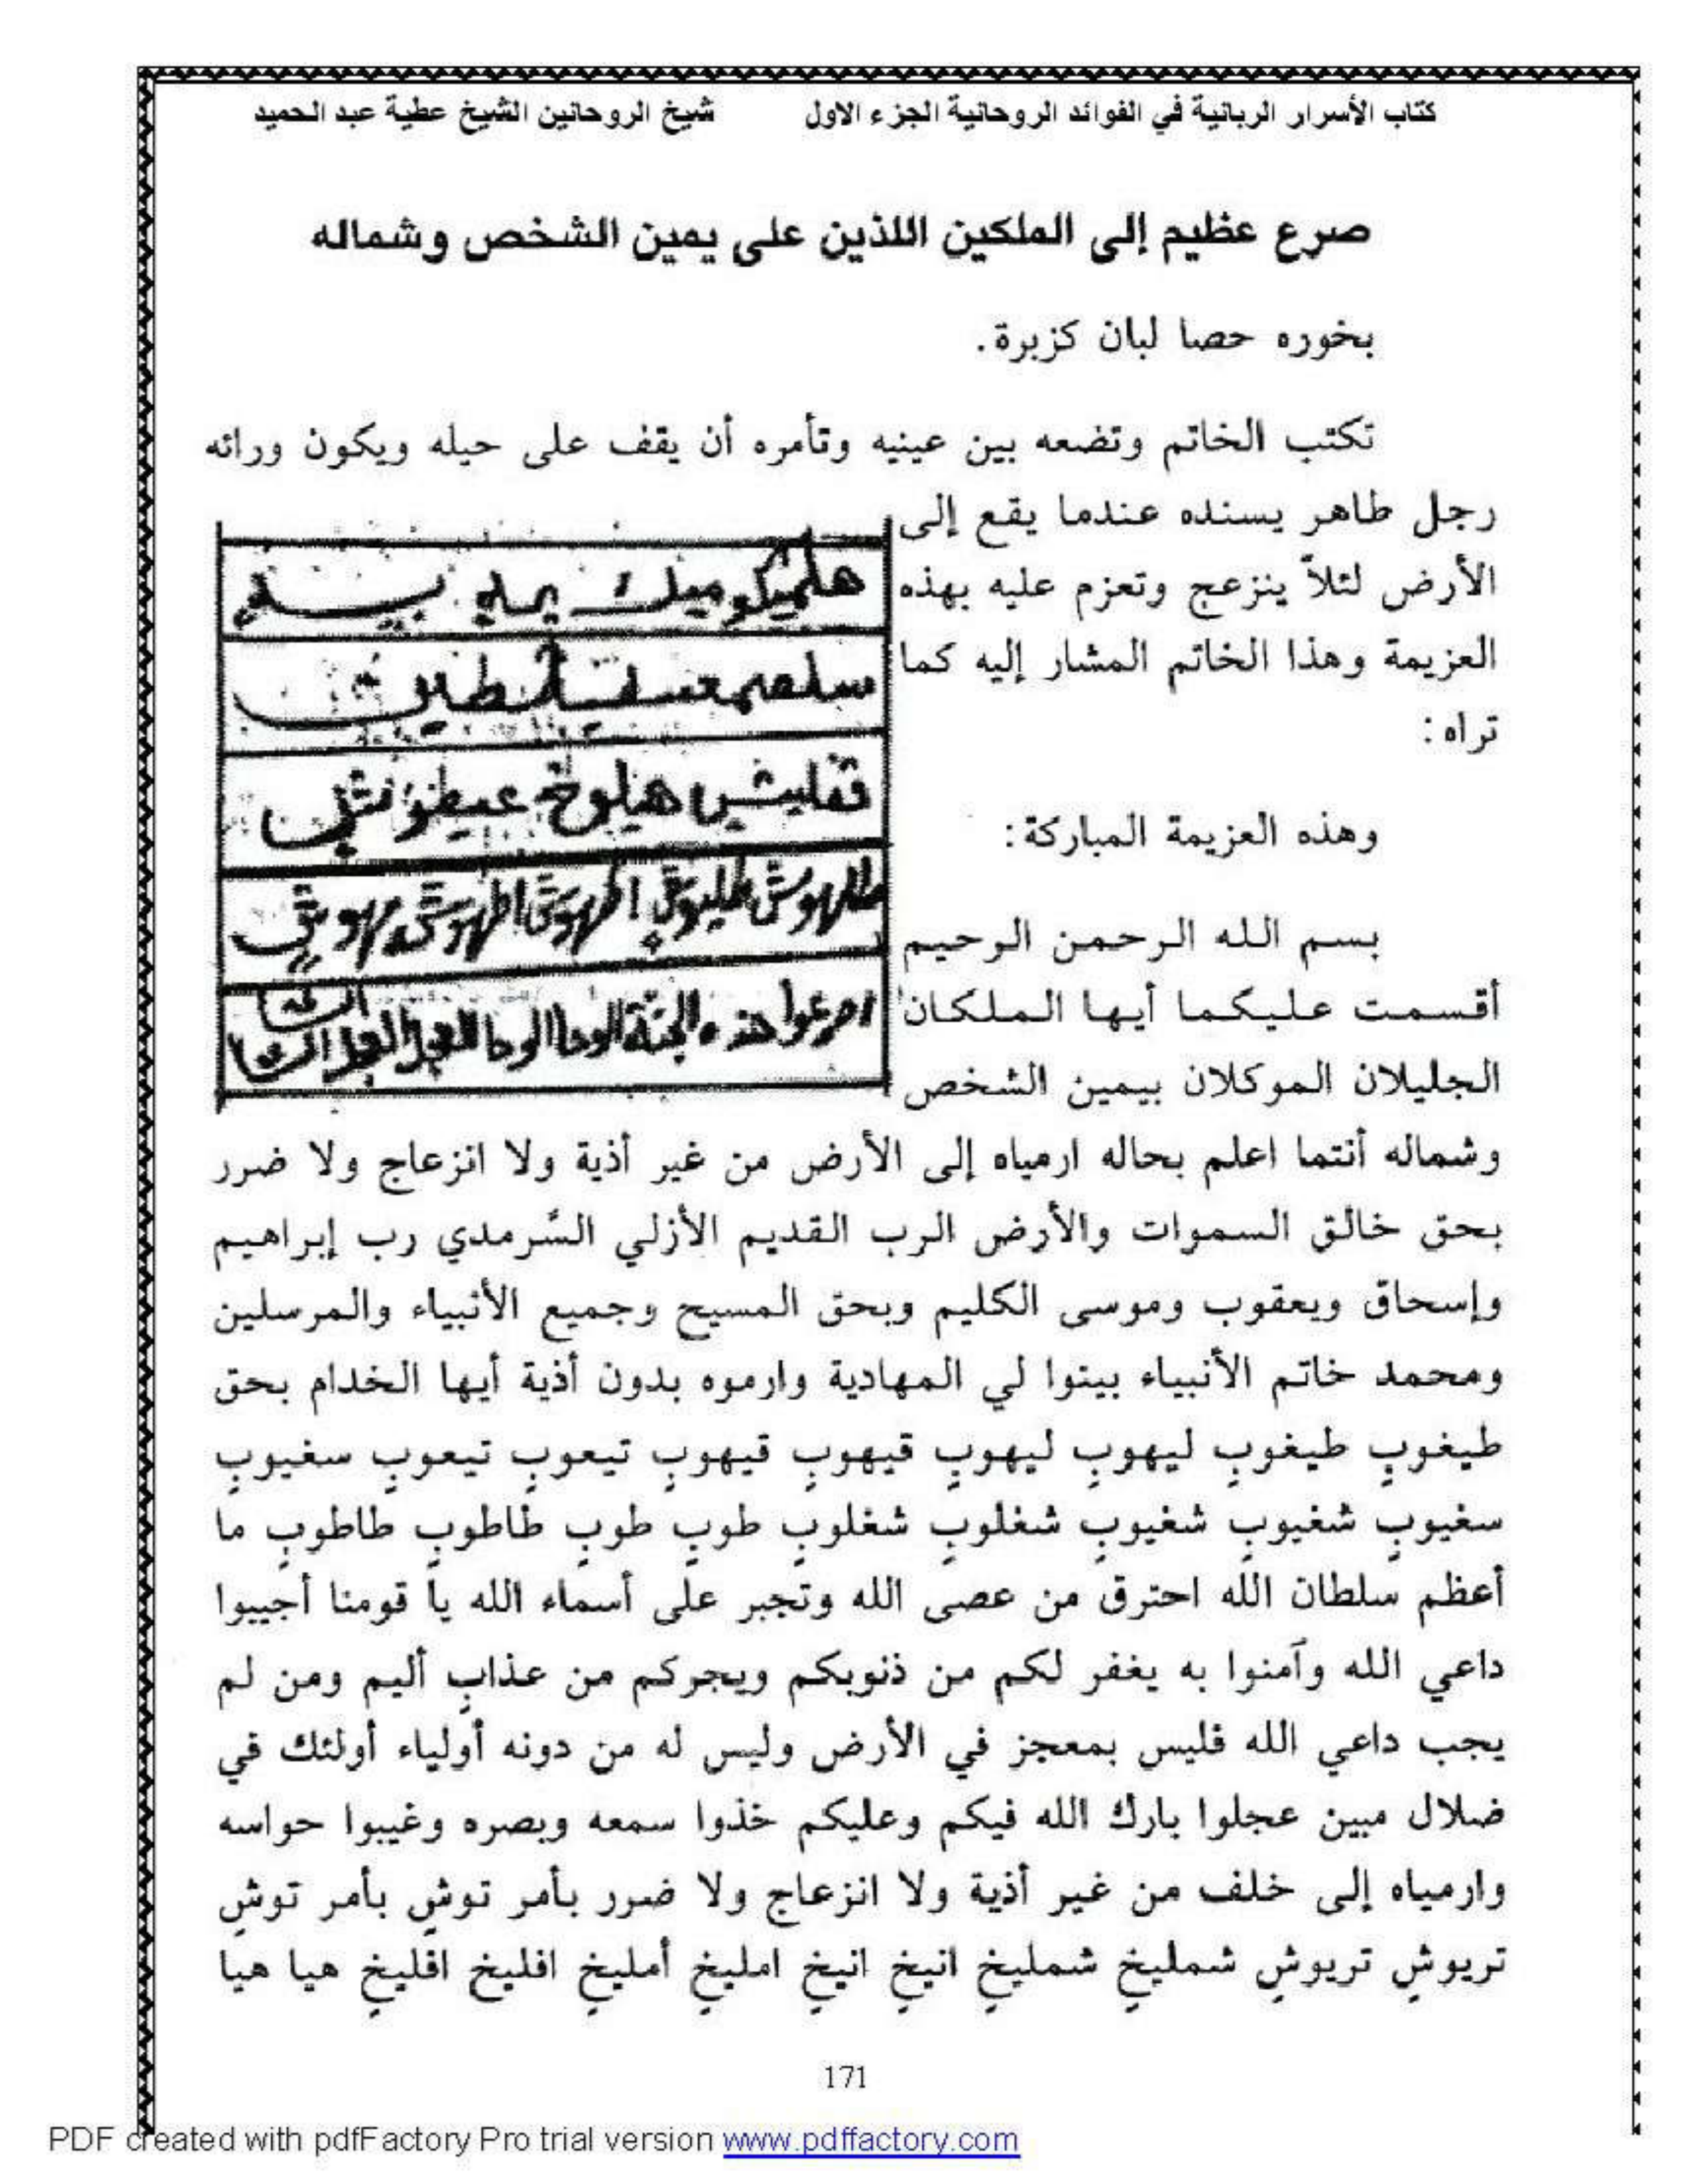 كتاب الأسرار الربانية في الفوائد الروحانية الجزء الاول شيخ الروحانين الشيخ عطية عبد الحميد
صرع عظيم إلى الملكين اللذين على يمين الشخص وشماله
بخوره حصا لبان كزبرة.
تكتب الخاتم وتضعه بين عينيه وتأمره أن يقف على حيله ويكون ورائه
رجل طاهر يسنده عندما يقع إلى
الأرض لئلاّ ينزعج وتعزم عليه بهذه
العزيمة وهذا الخاتم المشار إليه كما
تراه:
وهذه العزيمة المباركة:
بسم الله الرحمن الرحيم
أقسمت عليكما أيها الملكان
الجليلان الموكلان بيمين الشخص
هذه الجثة الوحا الوحا العجل العجل
وشماله أنتما اعلم بحاله ارمياه إلى الأرض من غير أذية ولا انزعاج ولا ضرر
بحق خالق السموات والأرض الرب القديم الأزلي السَّرمدي رب إبراهيم
وإسحاق ويعقوب وموسى الكليم وبحق المسيح وجميع الأنبياء والمرسلين
ومحمد خاتم الأنبياء بيتوا لي المهادية وارموه بدون أذية أيها الخدام بحق
طيغوبٍ طيغوبٍ ليهوبٍ ليهوبٍ قيهوبٍ قيهوبٍ تيعوبٍ تيعوبٍ سغيوبٍ
سغيوبٍ شغيوبٍ شغيوبٍ شغلوبٍ شغلوبٍ طوبٍ طوبٍ طاطوبٍ طاطوبٍ ما
أعظم سلطان الله احترق من عصى الله وتجبر على أسماء الله يا قومنا أجيبوا
داعي الله وآمنوا به يغفر لكم من ذنوبكم ويجركم من عذابٍ أليم ومن لم
يجب داعي الله فليس بمعجز في الأرض وليس له من دونه أولياء أولئك في
ضلال مبين عجلوا بارك الله فيكم وعليكم خذوا سمعه وبصره وغيبوا حواسه
وارمياه إلى خلف من غير أذية ولا انزعاج ولا ضرر بأمر توشٍ بأمر توشٍ
تريوشٍ تريوشٍ شمليخٍ شمليخٍ انيخٍ انيخٍ امليخٍ أمليخٍ افليخٍ افليخٍ هيا هيا
171
PDF created with pdfFactory Pro trial version www.pdffactory.com